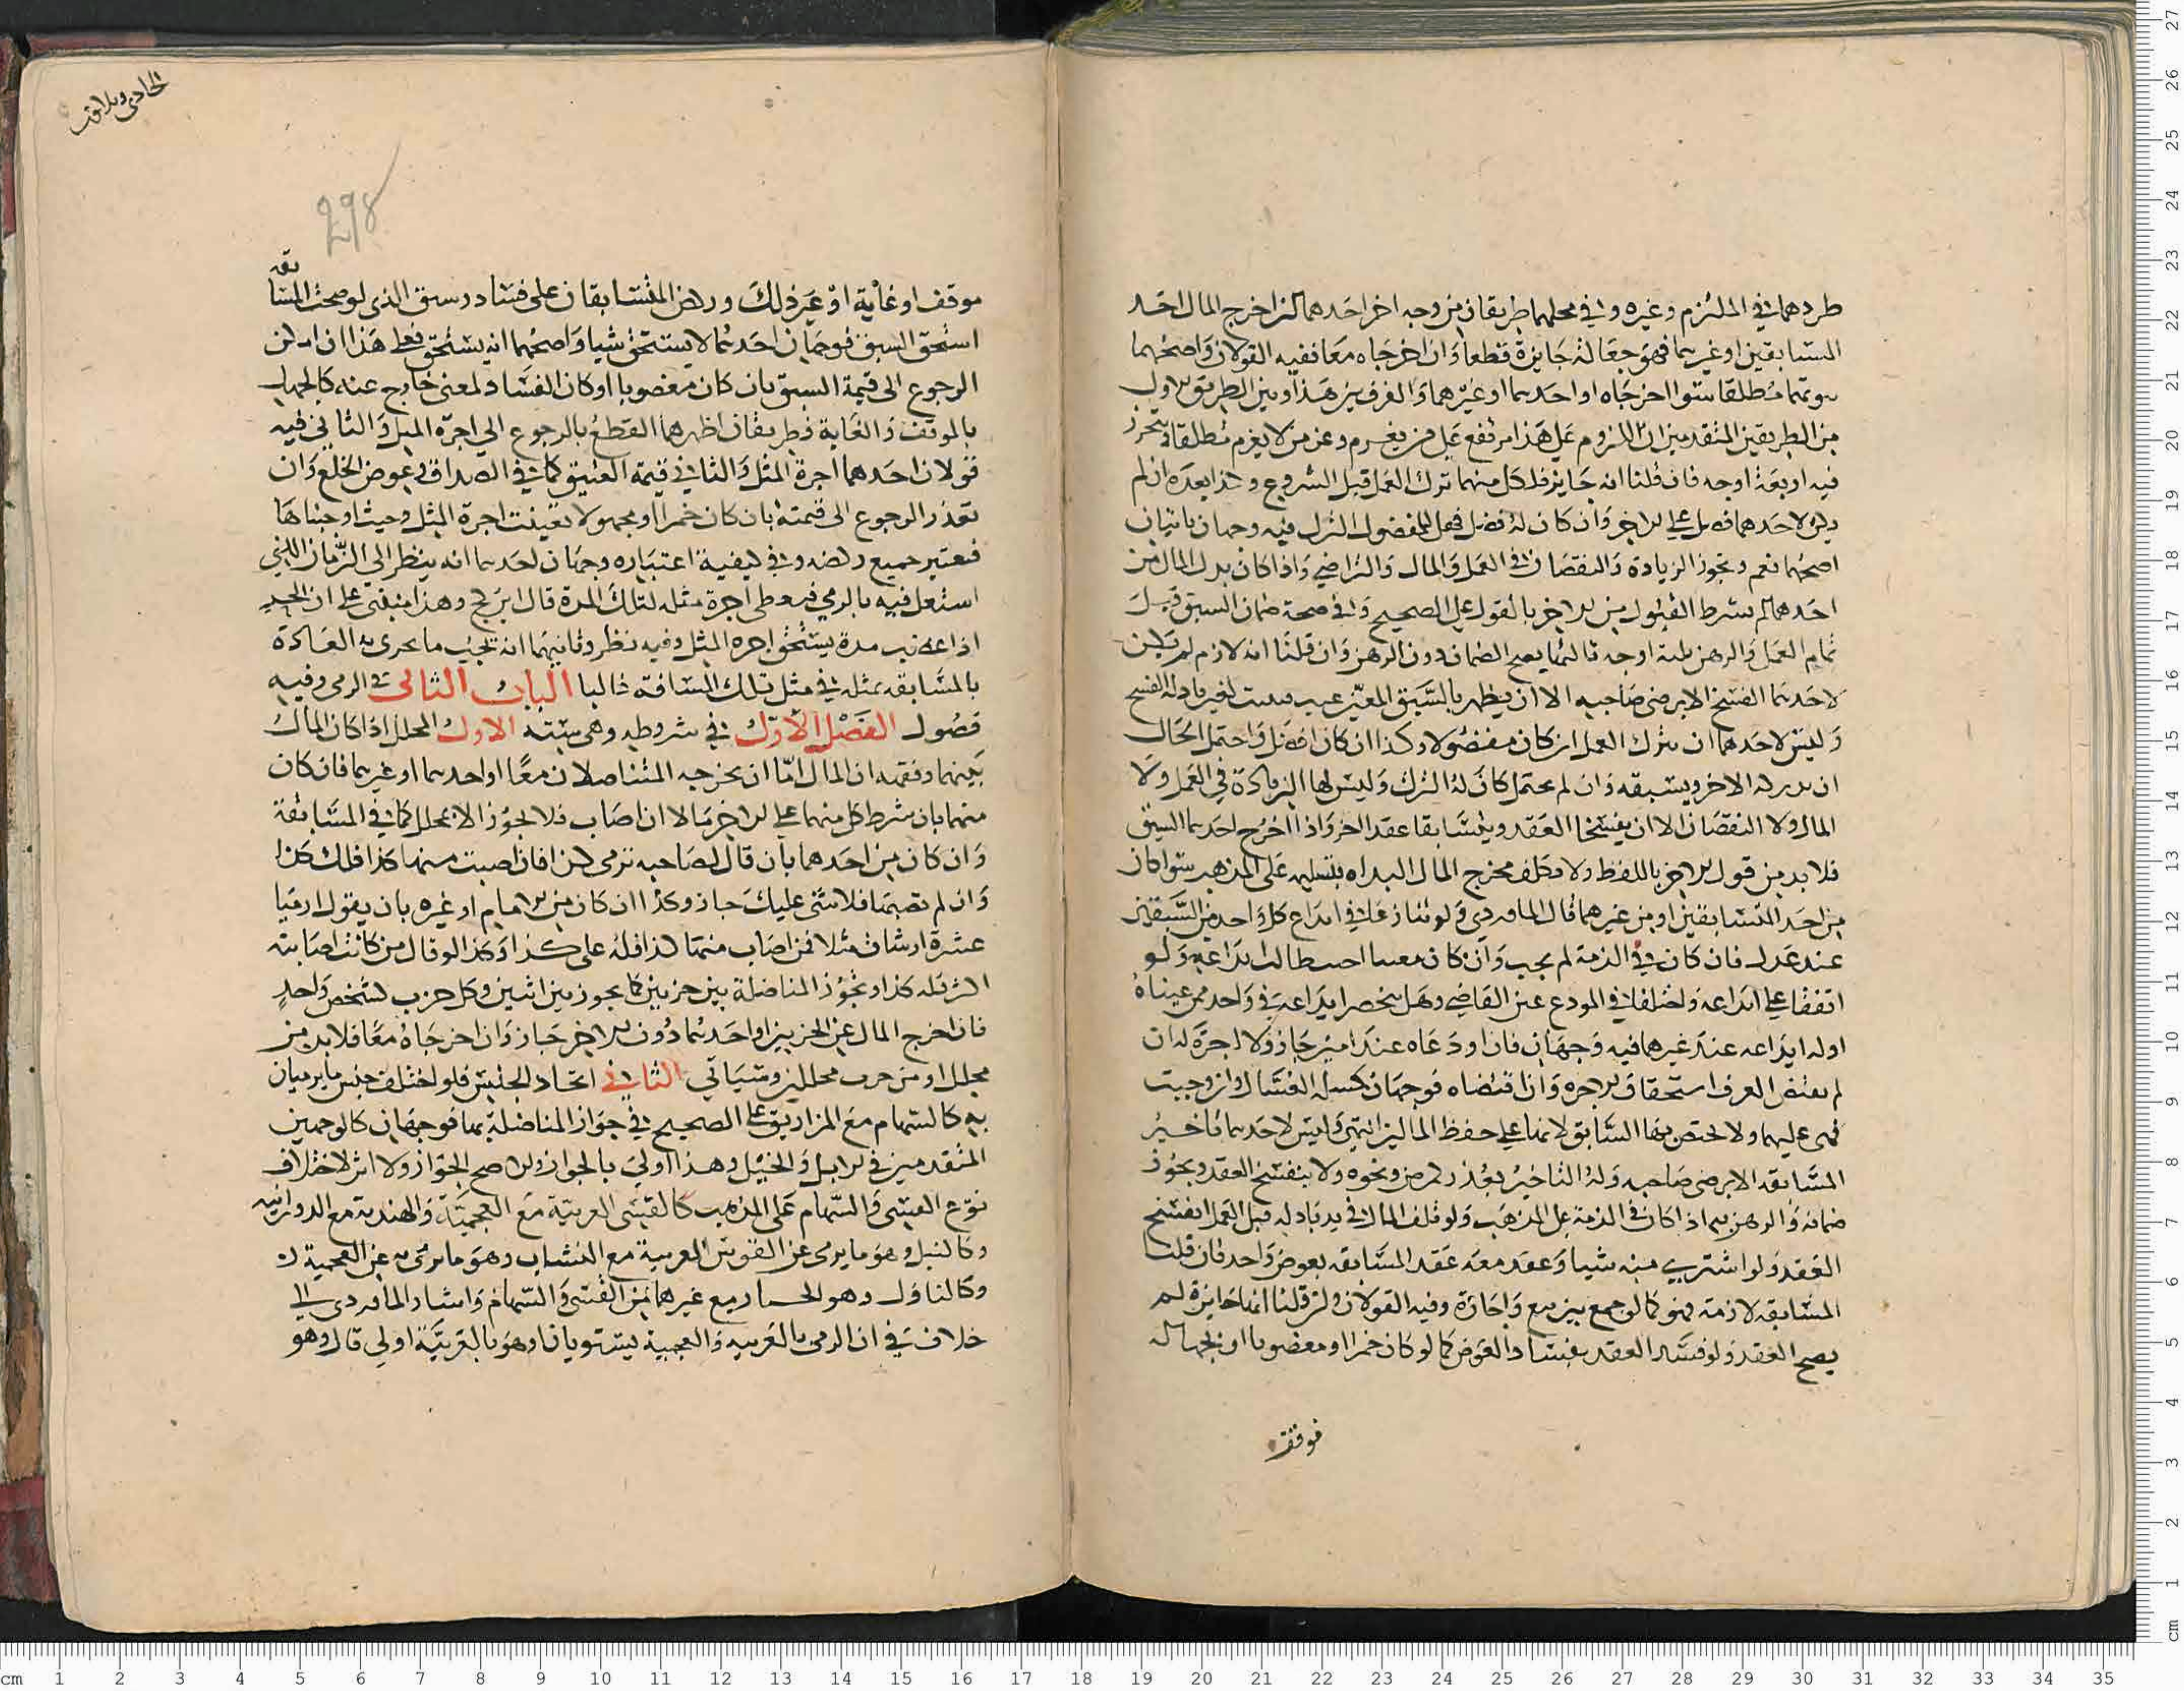 طردهما في الملتزم وغيره وفي محلهما طريقان من وجه اخر احدهما ان اخرج المال احد
السابقين او غيرهما فهو جعالة جايزة قطعا وان اخرجاه معا ففيه القولان واصحهما
مطلقا سوا اخرجاه او احدهما او غيرهما والفرق بين هذا وبين الطريق الاول
من الطريقين المتقدمين ان اللزوم على هذا مرتفع عن من يغرم وعن من لا يغرم مطلقا
فيه اربعة اوجه فان قلنا انه جايز فلكل منهما ترك العمل قبل الشروع وكذا بعده ان لم
يكن لاحدهما فضل على الاخر وان كان له فضل فهل للمفضول الترك فيه وجهان ياتيان
اصحهما نعم وتجوز الزيادة والنقصان في العمل والمال والتراضي واذا كان بذل المال من
احدهما لم يشترط القبول من الاخر بالقول على الصحيح وفي صحة ضمان السبق قبل
تمام العمل والرهن ثلثة اوجه ثالثها يصح الضمان دون الرهن وان قلنا انه لازم لم يكن
لاحدهما الفسخ الا برضى صاحبه الا ان يظهر بالسبق المعين عيب فيثبت لغير باذله الفسخ
وليس لاحدهما ان يترك العمل ان كان مفضولا وكذا ان كان افضل واحتمل الحال
ان يدركه الاخر ويسبقه وان لم يحتمل كان له الترك وليس لهما الزيادة في العمل ولا
المال ولا النقصان الا ان يفسخا العقد ويتسابقا عقدا اخر واذا اخرج احدهما السبق
فلا بد من قول الاخر باللفظ ولا يكلف مخرج المال البداه بتسليمه على المذهب سوا كان
من احد المتسابقين او من غيرهما قال الماوردي ولو تنازعا في ايداع كل واحد من السبقين
عند عدل فان كان في الذمة لم يجب وان كان معينا اجيب طالب ايداعه ولو
اتفقا على ايداعه واختلفا في المودع عين القاضي وهل ينحصر ايداعه في واحد ممن عيناه
اوله ايداعه عند غيرهما فيه وجهان فان اودعاه عند امين جاز ولا اجرة له ان
لم يقتض العرف استحقاق الاجره وان اقتضاه فوجهان كمسلة الغسال وان وجبت
فهي عليهما ولا تختص بها السابق لانها على حفظ المالين انتهى وليس لاحدهما تاخير
المسابقه الا برضى صاحبه وله التاخير بعذر لمرض ونحوه ولا ينفسخ العقد ويجوز
ضمانه والرهن به اذا كان في الذمة على المذهب ولو تلف المال في يد باذله قبل العمل انفسخ
العقد ولو اشترى منه شيا وعقد معه عقد المسابقه بعوض واحد فان قلنا
المسابقه لازمة فهو كما لو جمع بين بيع واجارة وفيه القولان وان قلنا انها جايزة لم
يصح العقد ولو فسد العقد بفساد العوض كما لو كان خمرا او مغصوبا او لجهالة
فوقف
الحادي
298
موقف او غاية او غير ذلك وركض المتسابقان على فساد وسبق الذي لو صحت المسابقه
استحق السبق فوجهان احدهما لا يستحق شيا واصحهما انه يستحق فعلى هذا ان امكن
الرجوع الى قيمة السبق بان كان مغصوبا او كان الفساد لمعنى خارج عنه كالجهل
بالموقف والغاية فطريقان اظهرهما القطع بالرجوع الى اجرة المثل والثاني فيه
قولان احدهما اجرة المثل والثاني قيمة العتيق كما في الصداق وعوض الخلع وان
تعذر الرجوع الى قيمته بان كان خمرا او مجهولا تعينت اجرة المثل وحيث اوجبناها
فتعتبر جميع ركضه وفي كيفية اعتباره وجهان احدهما انه ينظر الى الزمان الذي
اشتغل فيه بالرمي فيعطى اجرة مثله لتلك المدة قال ابن كج وهذا منبني على ان الحر
اذا غصب مدة يستحق اجرة المثل وفيه نظر وثانيهما انه تجب ما يجرى به العادة
بالمسابقه بمثله في مثل تلك المسافة غالبا الباب الثاني في الرمي وفيه
فصول الفصل الاول في شروطه وهي ستة الاول المحلل اذا كان المال
بينهما وفقهه ان المال اما ان يخرجه المتناضلان معا او احدهما او غيرهما فان كان
منهما بان شرط كل منهما على الاخر مالا ان اصاب فلا يجوز الا بمحلل كما في المسابقة
وان كان من احدهما بان قال لصاحبه نرمي كذا فان اصبت منها كذا فلك كذا
وان لم تصبها فلا شي عليك جاز وكذا ان كان من الامام او غيره بان يقول ارميا
عشرة ارشاق مثلا فمن اصاب منها كذا فله علي كذا وكذا لو قال من كانت اصابته
اكثر فله كذا وتجوز المناضلة بين حزبين كما يجوز بين اثنين وكل حزب كشخص واحد
فان اخرج المال عن الحزبين او احدهما دون الاخر جاز وان اخرجاه معا فلا بد من
محلل او من حزب محللين وسياتي الثاني اتحاد الجنس فلو اختلف جنس ما يرميان
به كالسهام مع المزاريق على الصحيح في جواز المناضلة بها فوجهان كالوجهين
المتقدمين في الابل والخيل وهذا اولى بالجواز والاصح الجواز ولا اثر لاختلاف
نوع القسي والسهام على المذهب كالقسي العربية مع العجمية والهندية مع الدورانيه
وكالنبل وهو ما يرمى عن القوس العربية مع النشاب وهو ما يرمى به عن العجمية
وكالناول وهو مع غيرهما من القسي والسهام واشار الماوردي الى
خلاف في ان الرمي بالعربيه والعجمية يستويان او هو بالعربية اولى قال وهو